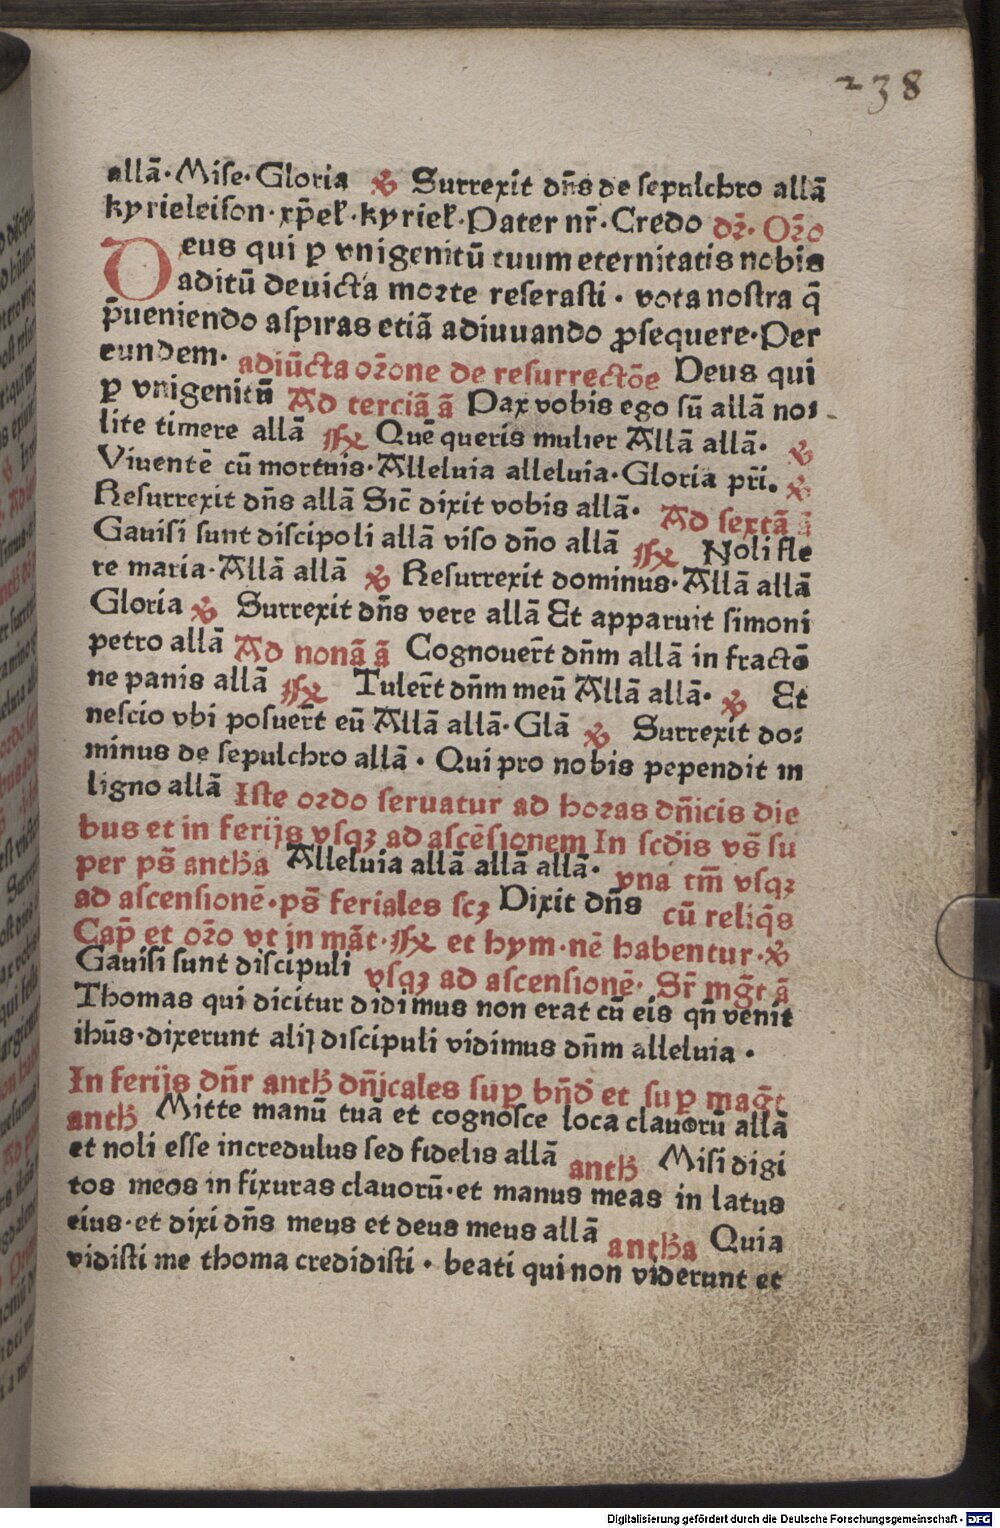 238
allā·Miſe·Gloria ℣ Surrexit dn̄s de ſepulchro allā
kyrieleiſon·xp̄eł·kyrieł·Pater nr̄·Credo dꝛ̄·Oꝛ̄o
Deus qui ꝑ vnigenitū tuum eternitatis nobis
aditū deuicta moꝛte reſeraſti · vota noſtra q̄
p̄ueniendo aſpiras etiā adiuuando ꝓſequere·Per
eundem· adiūcta oꝛ̄one de reſurrectōe Deus qui
ꝑ vnigenitū Ad terciā ā Pax vobis ego ſū allā no⸗
lite timere allā ℟ Quē queris mulier Allā allā· ℣
Viuentē cū mortuis·Alleluia alleluia·Gloria pr̄i. ℣
Reſurrexit dn̄s allā Sic̄ dixit vobis allā· Ad ſextā ā
Gauiſi ſunt diſcipoli allā viſo dn̄o allā ℟ Noli fle
re maria·Allā allā ℣ Reſurrexit dominus·Allā allā
Gloria ℣ Surrexit dn̄s vere allā Et apparuit ſimoni
petro allā Ad nonā ā Cognouer̄t dn̄m allā in fractō
ne panis allā ℟ Tuler̄t dn̄m meū Allā allā· ℣ Et
neſcio vbi poſuer̄t eū Allā allā·Glā ℣ Surrexit do⸗
minus de ſepulchro allā · Qui pro nobis pependit in
ligno allā Iſte oꝛdo ſeruatur ad hoꝛas dn̄icis die
bus et in ferijs vſqꝫ ad aſcēſionem In ſcd̄is vs̄ ſu
per ps̄ anth̄a Alleluia allā allā allā· vna tm̄ vſqꝫ
ad aſcenſionē·ps̄ feriales ſcꝫ Dixit dn̄s cū reliq̄s
Cap̄ et oꝛ̄o vt in māt·℟ et hym·nē habentur·℣
Gauiſi ſunt diſcipuli vſqꝫ ad aſcenſionē· Sr̄ mḡt ā
Thomas qui dicitur didimus non erat cū eis qn̄ venit
ihūs·dixerunt alij diſcipuli vidimus dn̄m alleluia ·
In ferijs dn̄r anth̄ dn̄icales ſuꝑ bn̄d̄ et ſuꝑ maḡt
anth̄ Mitte manū tuā et cognoſce loca clauorū allā
et noli eſſe incredulus ſed fidelis allā anth̄ Miſi digi
tos meos in fixuras clauorū·et manus meas in latus
eius·et dixi dn̄s meus et deus meus allā anth̄a Quia
vidiſti me thoma credidiſti · beati qui non viderunt et
Digitalisierung gefördert durch die Deutsche Forschungsgemeinschaft · DFG